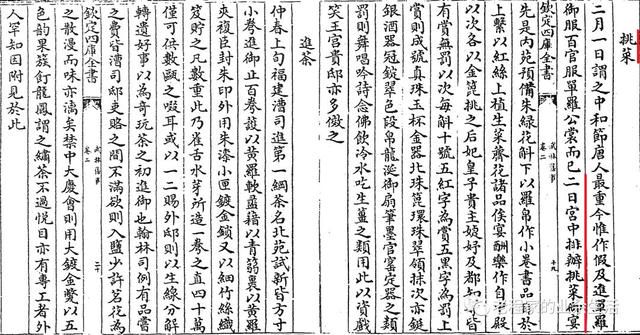 挑菜
二月一日謂之中和節唐人最重今惟作假及進單羅
御服百官服單羅公裳而已二日宮中排辦挑菜御宴
欽定四庫全書 武林舊事 卷二 十九
先是内苑預備朱綠花斛下以羅帛作小卷書品目於
上繫以紅絲上植生菜薺花諸品俟宴酬樂作自中殿
以次各以金篦挑之后妃皇子貴主婕妤及都知等皆
有賞無罰以次每斛十號五紅字為賞五黑字為罰上
賞則成號真珠玉杯金器北珠篦環珠翠領抹次亦鋌
銀酒器冠鋜翠色段帛龍涎御扇筆墨官窰定器之類
罰則舞唱吟詩念佛飲冷水吃生薑之類用此以資戲
笑王宮貴邸亦多傚之
進茶
仲春上旬福建漕司進第一綱茶名北苑試新皆方寸
小卷進御止百卷䕶以黃羅軟盝藉以青篛裹以黃羅
夾複臣封朱印外用朱漆小匣鍍金鎖又以細竹絲織
笈貯之凡數重此乃雀舌水芽所造一卷之直四十萬
僅可供數甌之啜耳或以一二賜外邸則以生線分解
轉遺好事以為奇玩茶之初進御也翰林司例有品嘗
欽定四庫全書 武林舊事 卷二 二十
之費皆漕司邸吏賂之間不滿欲則入鹽少許茗花為
之散漫而味亦漓矣禁中大慶會則用大鍍金㼜以五
色韵果簇飣龍鳳謂之繡茶不過悅目亦有專工者外
人罕知因附見於此